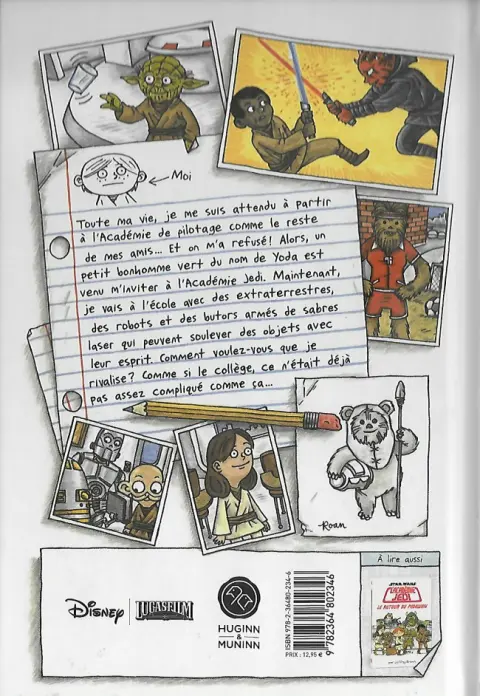 Moi
Toute ma vie, je me suis attendu à partir
à l'Académie de pilotage comme le reste
de mes amis... Et on m'a refusé! Alors, un
petit bonhomme vert du nom de Yoda est
venu m'inviter à l'Académie Jedi. Maintenant,
je vais à l'école avec des extraterrestres,
des robots et des butors armés de sabres
laser qui peuvent soulever des objets avec
leur esprit. Comment voulez-vous que je
rivalise? Comme si le collège, ce n'était déjà
pas assez compliqué comme ça...
-Roan
DISNEY
LUCASFILM
HUGINN
&
MUNINN
ISBN 978-2-36480-234-6
9 782364 802346
PRIX : 12,95 €
À lire aussi
STAR WARS
L'ACADÉMIE
JEDI
LE RETOUR DU PADAWAN